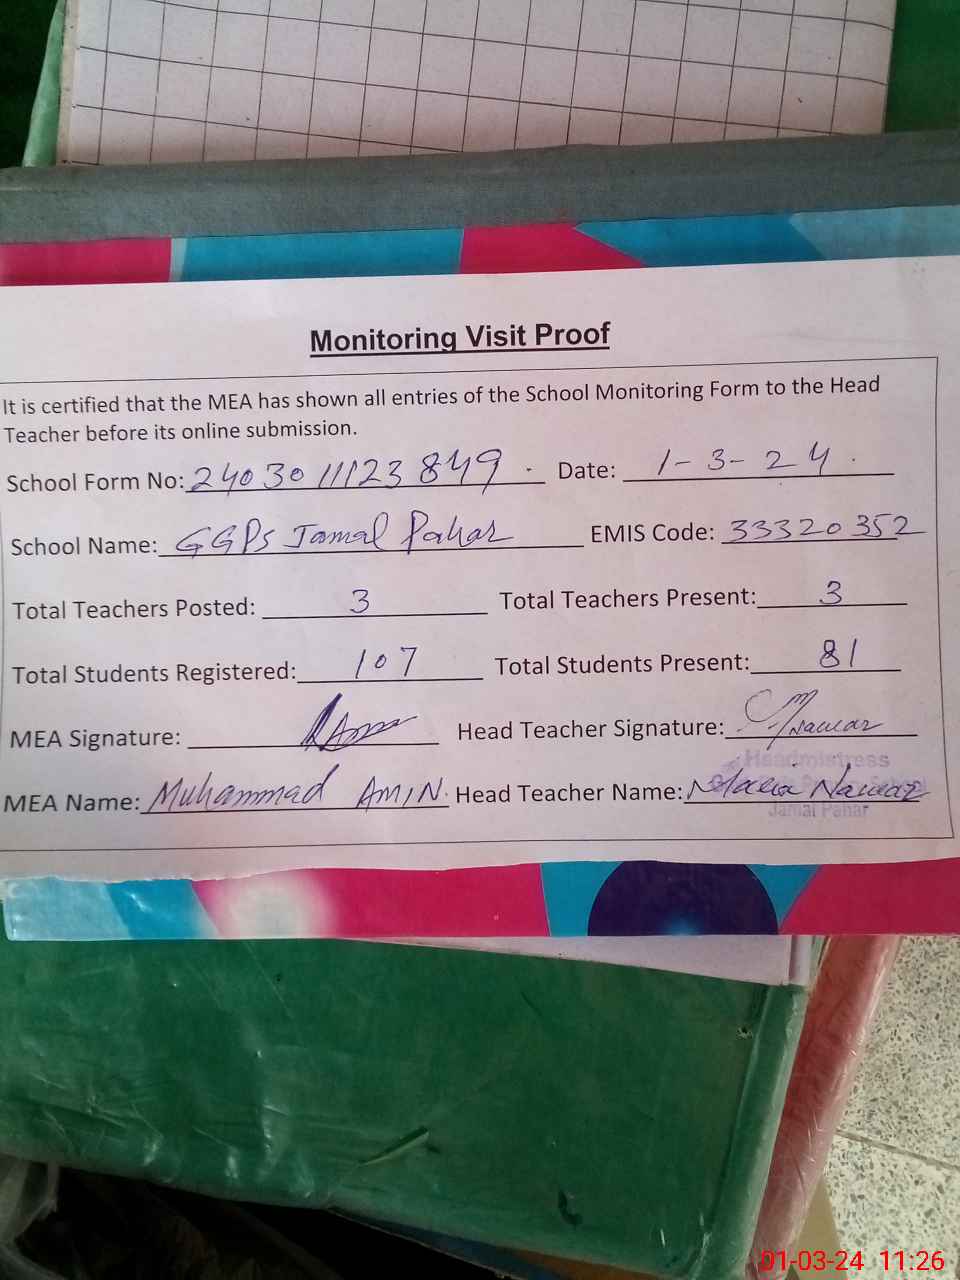 Monitoring Visit Proof
It is certified that the MEA has shown all entries of the School Monitoring Form to the Head
Teacher before its online submission.
School Form No: 2403011123849 Date: 1-3-24
School Name: GGPS Jamal Pahar EMIS Code: 33320352
Total Teachers Posted: 3 Total Teachers Present: 3
Total Students Registered: 107 Total Students Present: 81
MEA Signature: Head Teacher Signature:
Headmistress
MEA Name: Muhammad AMIN Head Teacher Name: Nawaz
Jamal Pahar
01-03-24 11:26